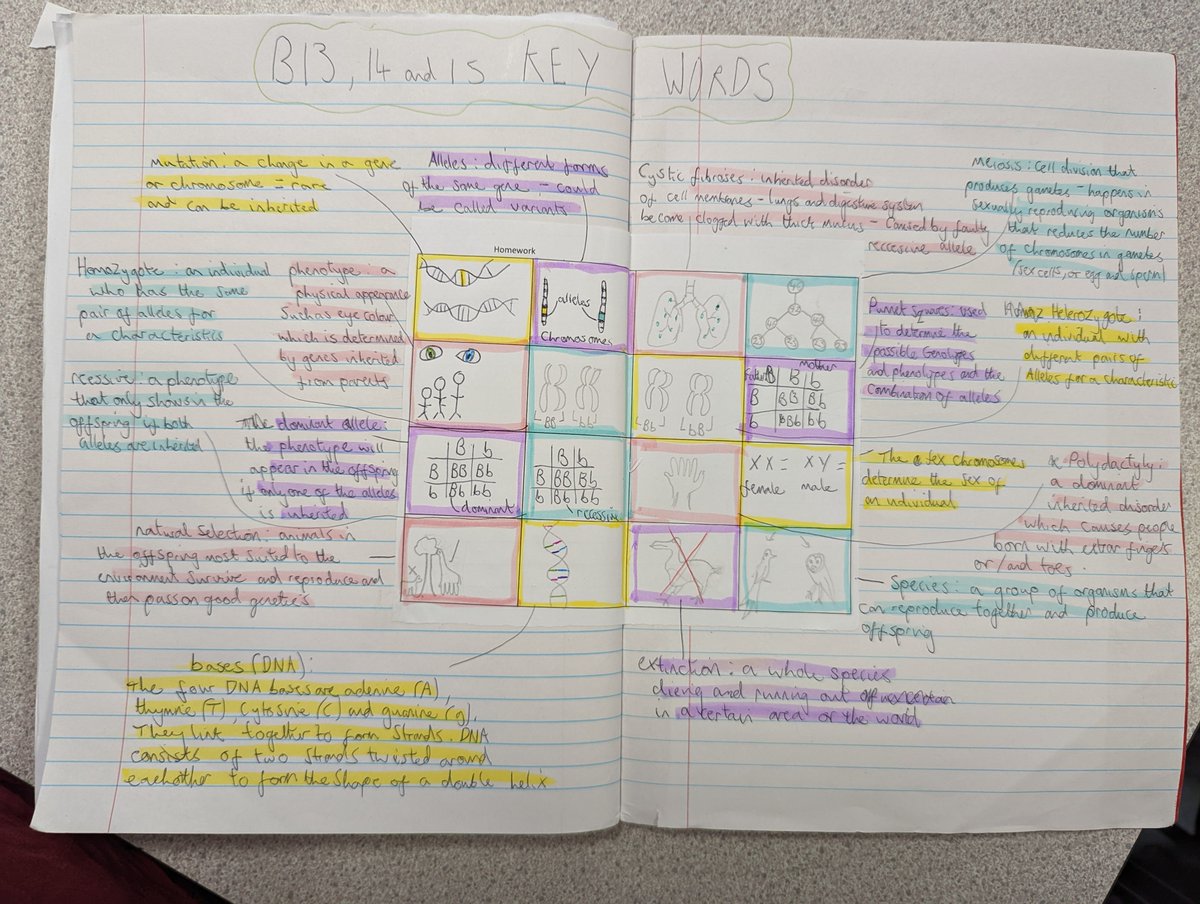 B13, 14 and 15 KEY WORDS
Mutation: a change in a gene
or chromosome = rare
and can be inherited
Alleles: different forms
of the same gene - could
be called variants
Cystic fibroses: inherited disorder
of cell membones - lungs and digestive system
become clogged with thick mucus - caused by faulty
reccesive allele
Meiosis: Cell division that
produces gametes - happens in
sexually reproducing organisms
that reduces the number
of chromosomes in gametes
(sex cells, or egg and sperm)
Homozygote: an individual
who has the same
pair of alleles for
characteristics
phenotype: a
physical appearance
such as eye colour
which is determined
by genes inherited
from parents
rcessive: a phenotype
that only shows in the
offspring if both
alleles are inherited
The dominant allele:
the phenotype will
appear in the offspring
if only one of the alleles
is inherited
natural selection: animals in
the offspring most suited to the
environment survive and reproduce and
then pass on good genetics
Homework
alleles
Chromosomes
BB bB
BB bB
mother
father
B b
B BB Bb
b Bb bb
B b
B BB Bb
b Bb bb
dominant
B b
B BB Bb
b Bb bb
recessive
XX = XY =
female male
Punnet squares: used
to determine the
possible Genotypes
and phenotypes and the
combination of alleles
Heterozygote:
an individual with
different pairs of
Alleles for a characteristic
The sex chromosomes
determine the sex of
an individual
Polydactyly:
a dominant
inherited disorder
which causes people
born with extra fingers
or/and toes.
Species: a group of organisms that
can reproduce together and produce
offspring
bases (DNA):
The four DNA bases are adenine (A),
thymine (T), cytosine (C) and guanine (g).
They link together to form strands. DNA
consists of two strands twisted around
eachother to form the shape of a double helix
extinction: a whole species
dieing and running out
in a certain area or the world